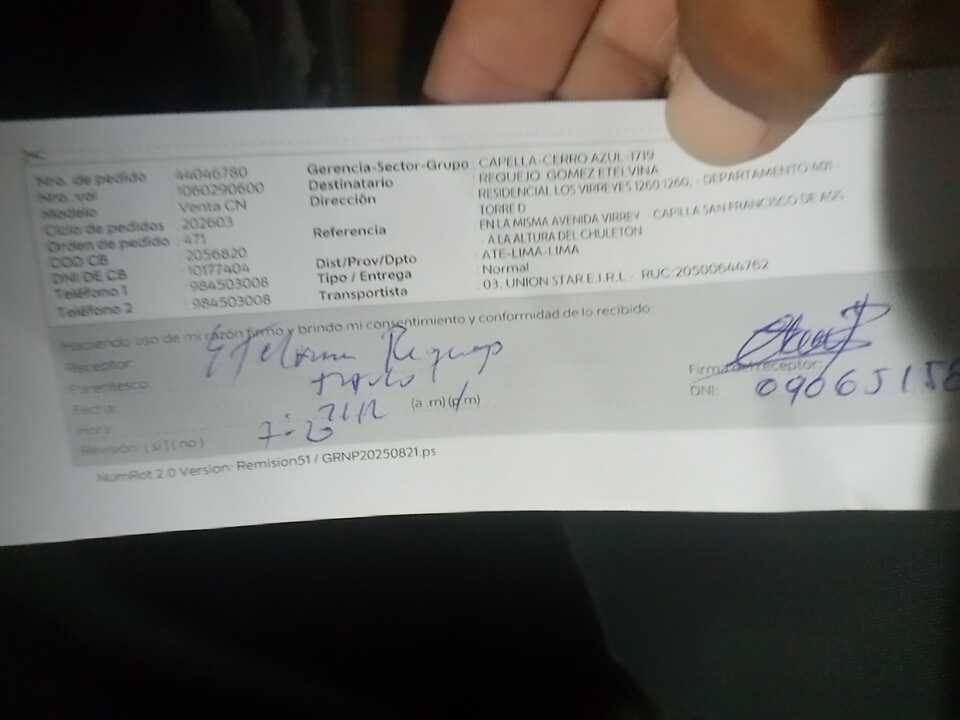 Nro. de pedido : 44046780
Nro. vol : 1060290600
Modelo : Venta CN
Ciclo de pedidos : 202603
Orden de pedido : 471
COD CB : 2056820
DNI DE CB : 10177404
Teléfono 1 : 984503008
Teléfono 2 : 984503008
Gerencia-Sector-Grupo : CAPELLA-CERRO AZUL-1719
Destinatario : REQUEJO GOMEZ ETELVINA
Dirección : RESIDENCIAL LOS VIRREYES 1260 1260, - DEPARTAMENTO 401
TORRE D
Referencia : EN LA MISMA AVENIDA VIRREY CAPILLA SAN FRANCISCO DE ASIS
A LA ALTURA DEL CHULETON
Dist/Prov/Dpto : ATE-LIMA-LIMA
Tipo / Entrega : Normal
Transportista : 03, UNION STAR E.I.R.L - RUC:20500644762
Haciendo uso de mi razón firmo y brindo mi consentimiento y conformidad de lo recibido:
Receptor: Etelvina Requejo
Parentesco:
Fecha: 21/12
Hora: (a.m) (p/m)
Revisión: ( si ) ( no )
Firma del receptor:
DNI: 09065158
NumRot 2.0 Version: Remision51 / GRNP20250821.ps